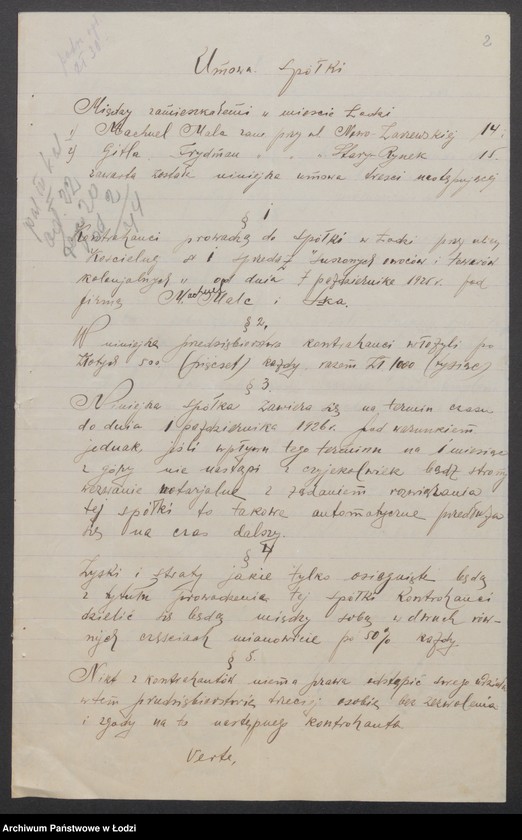 2
Umowa spółki
Między zamieszkałemi w mieście Łodzi
1) Machuel Malc zam przy ul Nowo-Zarzewskiej 14.
2) Gitla Frydman " " " Stary Rynek 15.
zawarta została niniejsza umowa treści następującej
§ 1
Kontrahenci prowadzą do spółki w Łodzi przy ulicy
Kościelnej № 1 sprzedaż "suszonych owoców i towarów
kolonjalnych" od dnia 7 października 1925 r. pod
firmą Machuel Malc i S-ka.
§ 2.
W niniejsze przedsiębiorstwo kontrahenci włożyli po
Złotych 500 (pięćset) każdy razem Zł 1000 (tysiąc)
§ 3.
Niniejsza spółka zawiera się na termin czasu
do dnia 1 października 1926 r. pod warunkiem
jednak jeśli wpływem tego terminu na 1 miesiąc
z góry nie nastąpi z czyjejkolwiek bądź strony
wezwanie notarjalne z żądaniem rozwiązania
tej spółki to takowa automatycznie przedłuża
się na czas dalszy.
§ 4
Zyski i straty jakie tylko osiągnięte będą
z tytułu prowadzenia tej spółki kontrahenci
dzielić się będą między sobą w dwuch rów-
nych częściach mianowicie po 50% każdy
§ 5.
Nikt z kontrahentów niema prawa odstąpić swego udziału
w tem przedsiębiorstwie trzeciej osobie bez zezwolenia
i zgody na to następnego kontrahenta
Verte,
Archiwum Państwowe w Łodzi